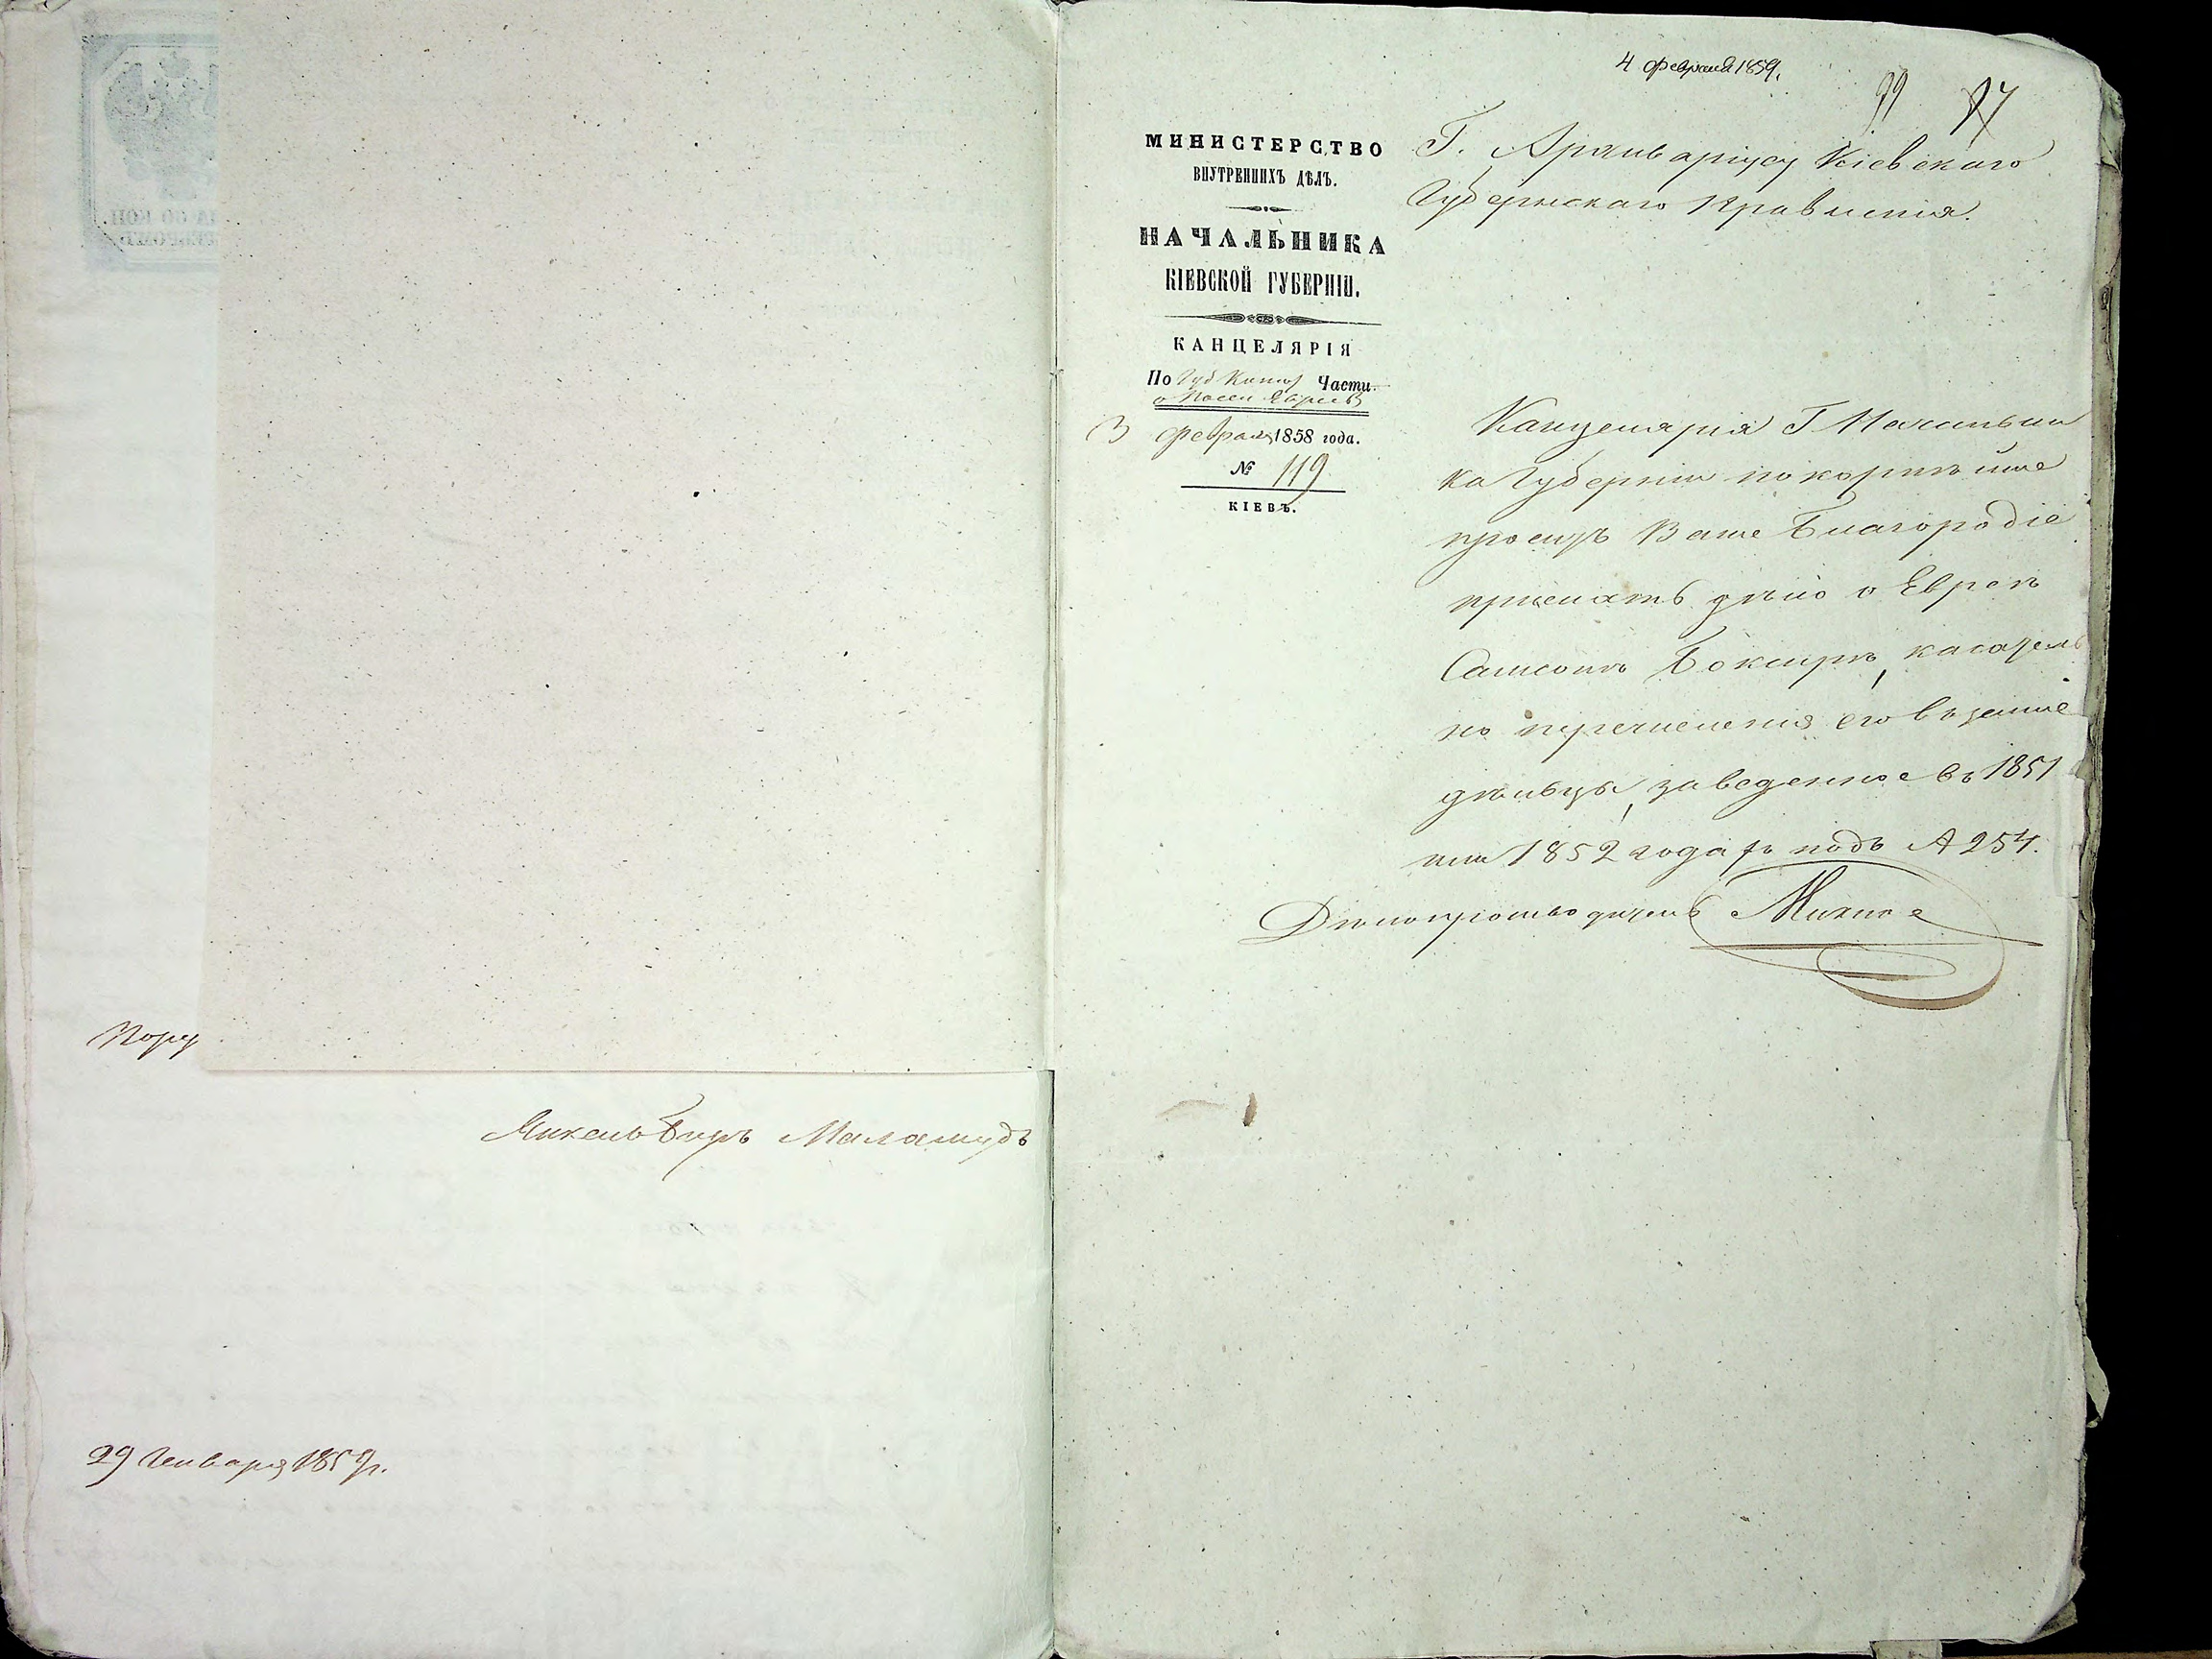 Пору
Михель Биръ Маламудъ
29 Генваря 1859 г.
4 февраля 1859.
99 97
МИНИСТЕРСТВО
ВНУТРЕННИХЪ ДѢЛЪ.
НАЧАЛЬНИКА
КІЕВСКОЙ ГУБЕРНІИ.
КАНЦЕЛЯРІЯ
По Части.
о Посел Евреевъ
3 февраля 1858 года.
№ 119
КІЕВЪ.
Г. Архиваріусу Кіевскаго
Губернскаго Правленія.
Канцелярія Г Начальни
ка Губерніи покорнѣйше
проситъ Ваше Благородіе
прислать дѣло о Евреѣ
Самсонѣ Боксирѣ, касатель
но перечисленія его въ земле
дѣльцы, заведенное въ 1851
или 1852 годахъ подъ № 254.
Дѣлопроизводитель